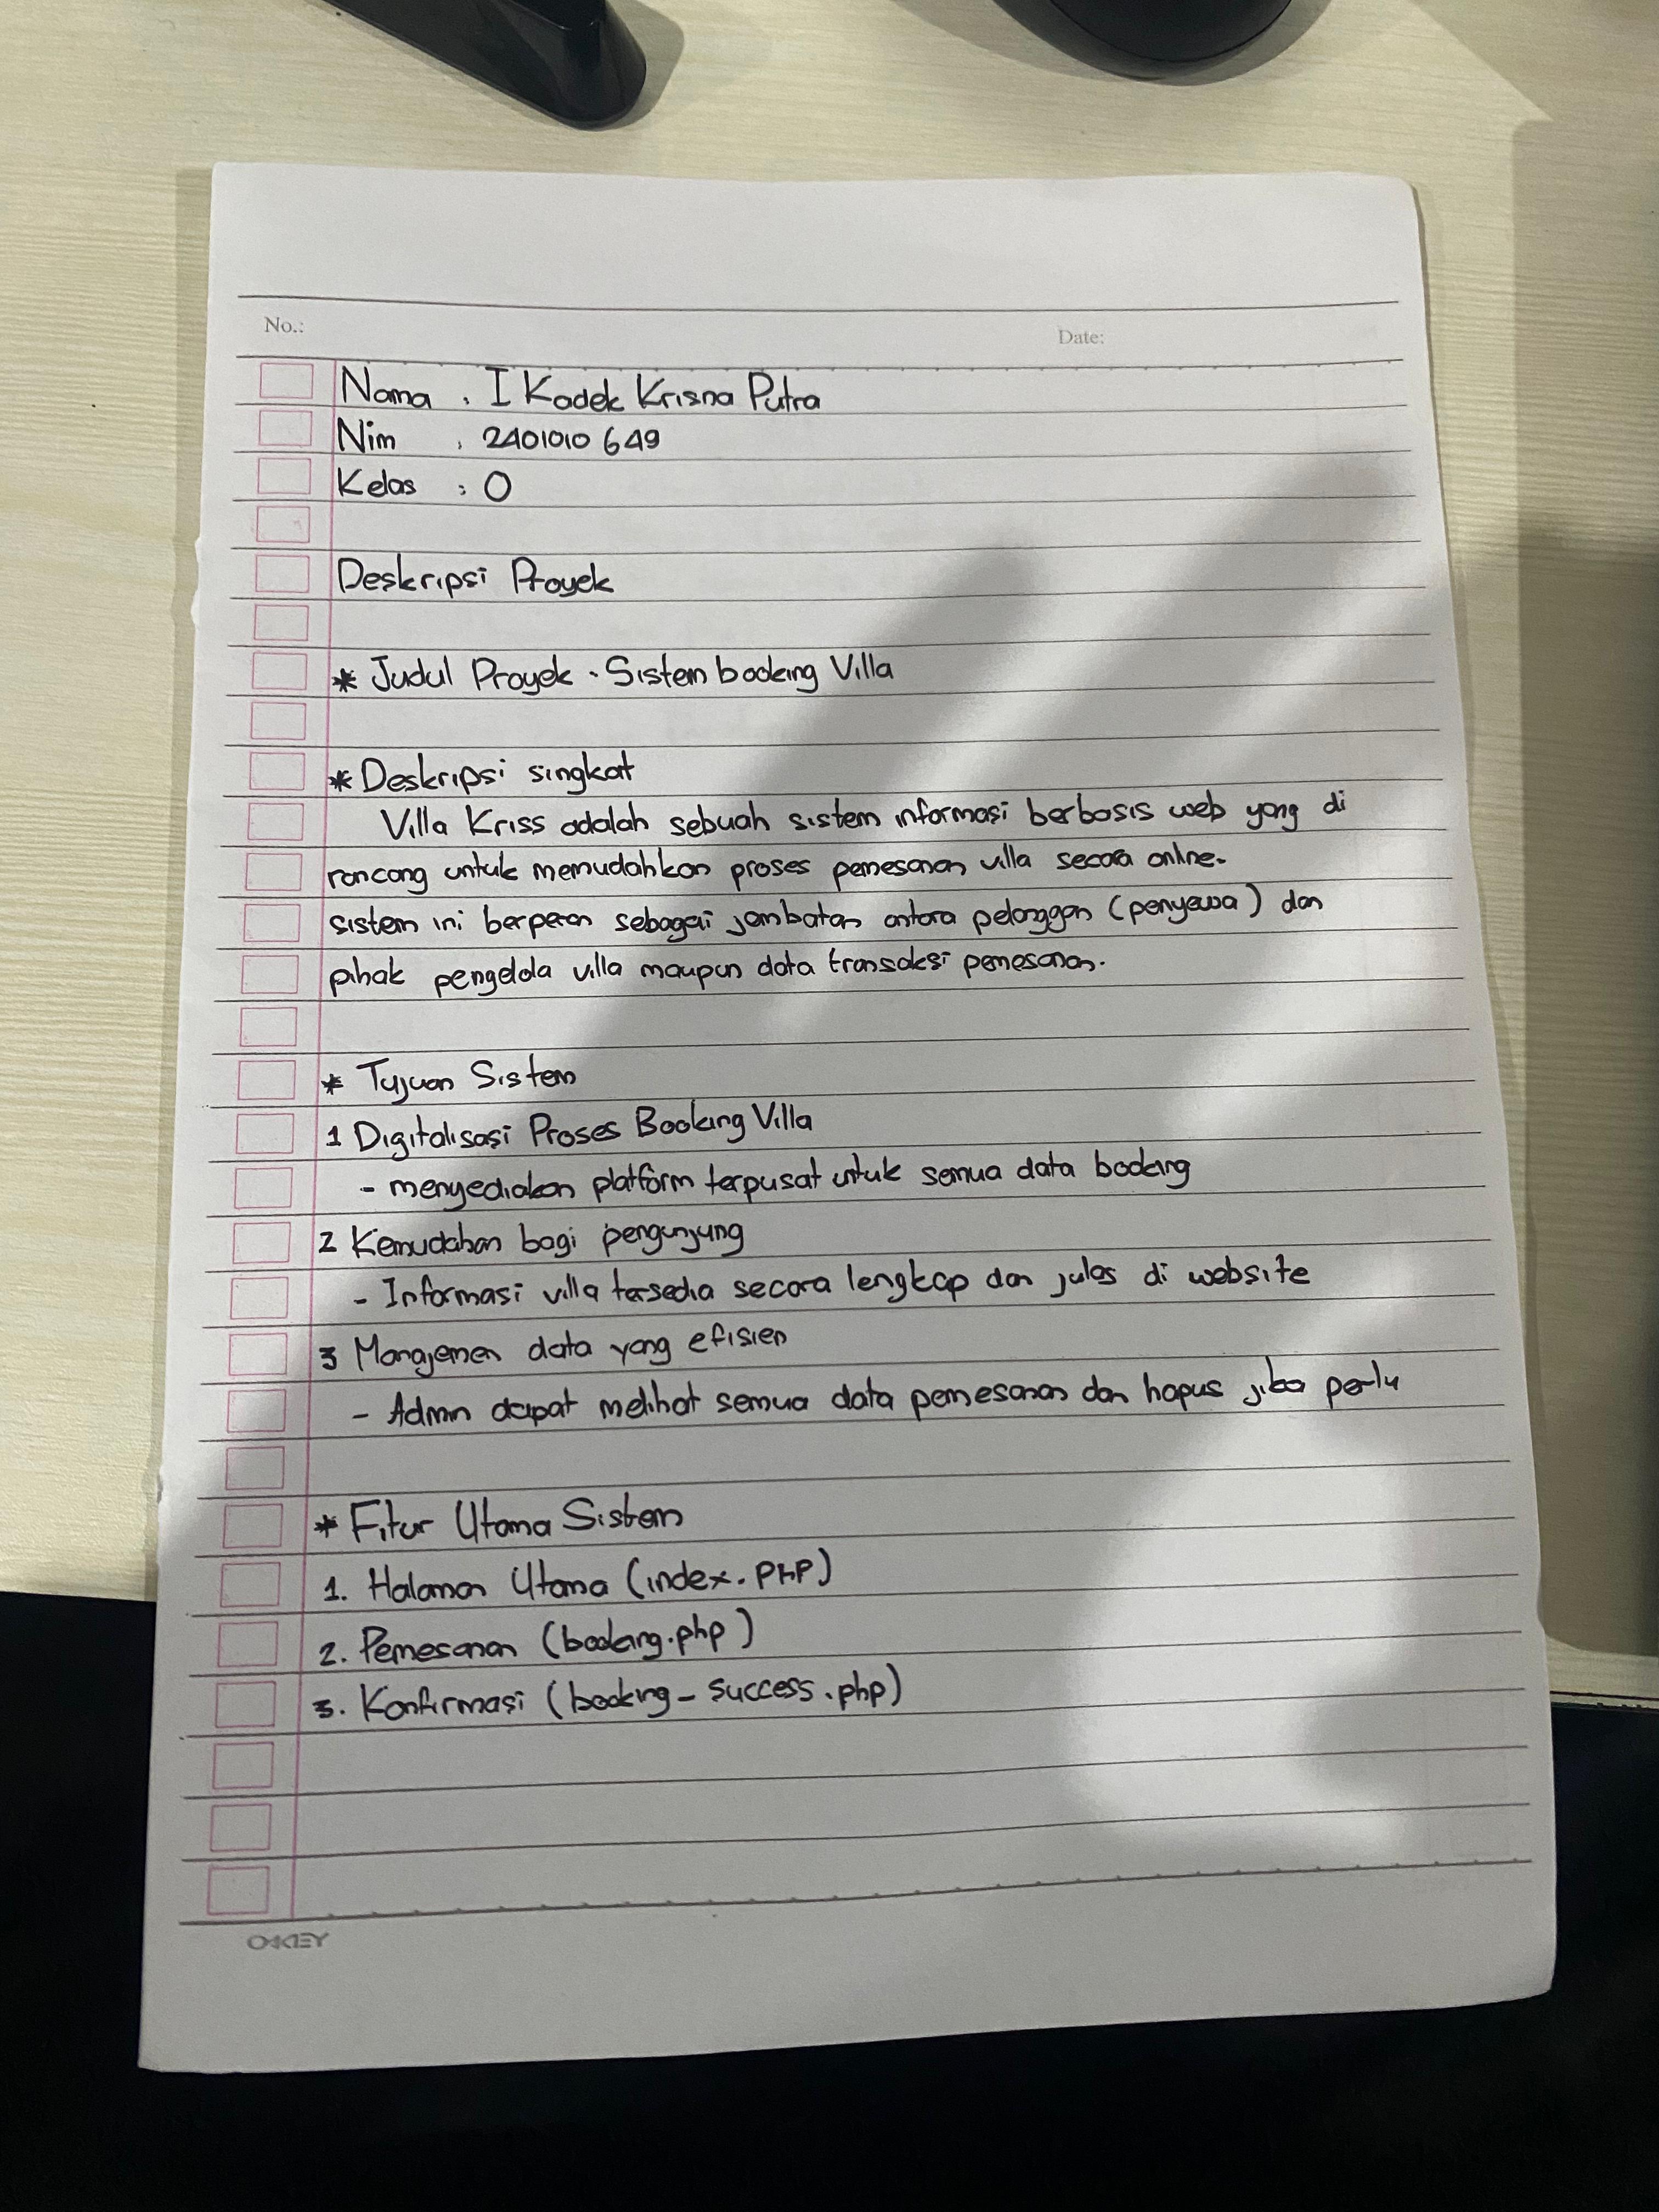 No.:
Date:
Nama : I Kadek Krisna Putra
Nim : 2401010 649
Kelas : O
Deskripsi Proyek
* Judul Proyek . Sistem booking Villa
* Deskripsi singkat
Villa Kriss adalah sebuah sistem informasi berbasis web yang di
rancang untuk memudahkan proses pemesanan villa secara online.
sistem ini berperan sebagai jembatan antara pelanggan (penyewa) dan
pihak pengelola villa maupun data transaksi pemesanan.
* Tujuan Sistem
1 Digitalisasi Proses Booking Villa
- menyediakan platform terpusat untuk semua data booking
2 Kemudahan bagi pengunjung
- Informasi villa tersedia secara lengkap dan julas di website
3 Manajemen data yang efisien
- Admin dapat melihat semua data pemesanan dan hapus jika perlu
* Fitur Utama Sistem
1. Halaman Utama (index.PHP)
2. Pemesanan (booking.php)
3. Konfirmasi (booking-success.php)
OKEY